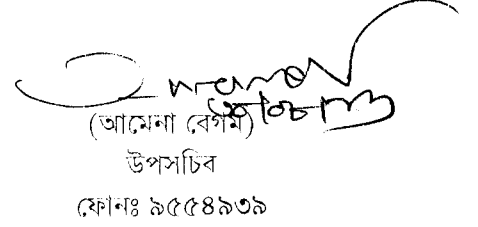 (আমেনা বেগম)
উপসচিব
ফোনঃ ৯৫৫৪৯৩৯